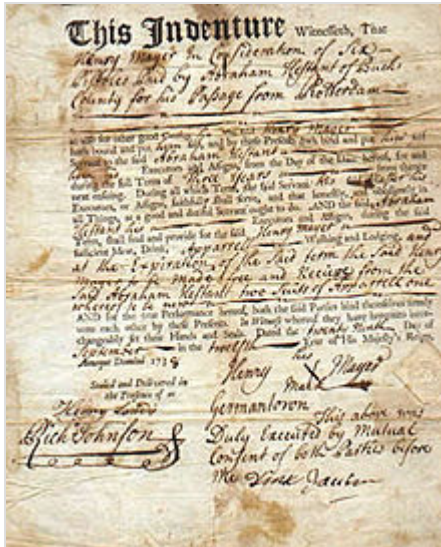 This Indenture Witnesseth, That
Henry Mayer In Consideration of Six
Pistoles Paid by Abraham Hestant of Bucks
County for his Passage from Rotterdam
as also for other good Causes, he the said Henry Mayer
hath bound and put himself, and by these Presents doth bind and put himself
Servant to the said Abraham Hestant
Executors and Assigns, from the Day of the Date hereof, for and
during the full Term of Three Years from thence
next ensuing. During all which Term, the said Servant his said Master his
Executors, or Assigns, faithfully shall serve, and that honestly and obediently in
all Things, as a good and dutiful Servant ought to do. AND the said Abraham
Hestant his Executors and Assigns, during the said
Term, shall find and provide for the said Henry Mayer
sufficient Meat, Drink, Apparrell Washing and Lodging, and
at the Expiration of the Said term the Said Henry
Mayer to be made free and Receive from the
Said Abraham Hestant two Suits of Apparrell one
whereof is to be new
AND for the true Performance hereof, both the said Parties bind themselves firmly
unto each other by these Presents. In Witness whereof they have hereunto inter-
changeably set their Hands and Seals. Dated the twenty Ninth Day of
September in the twelfth Year of His Majesty's Reign,
Annoque Domini 1738
Sealed and Delivered in
the Presence of us
his
Henry X Mayer
Mark
Rich Johnson
Germantown This above was
Duly Executed by Mutual
Consent of both Parties before
me